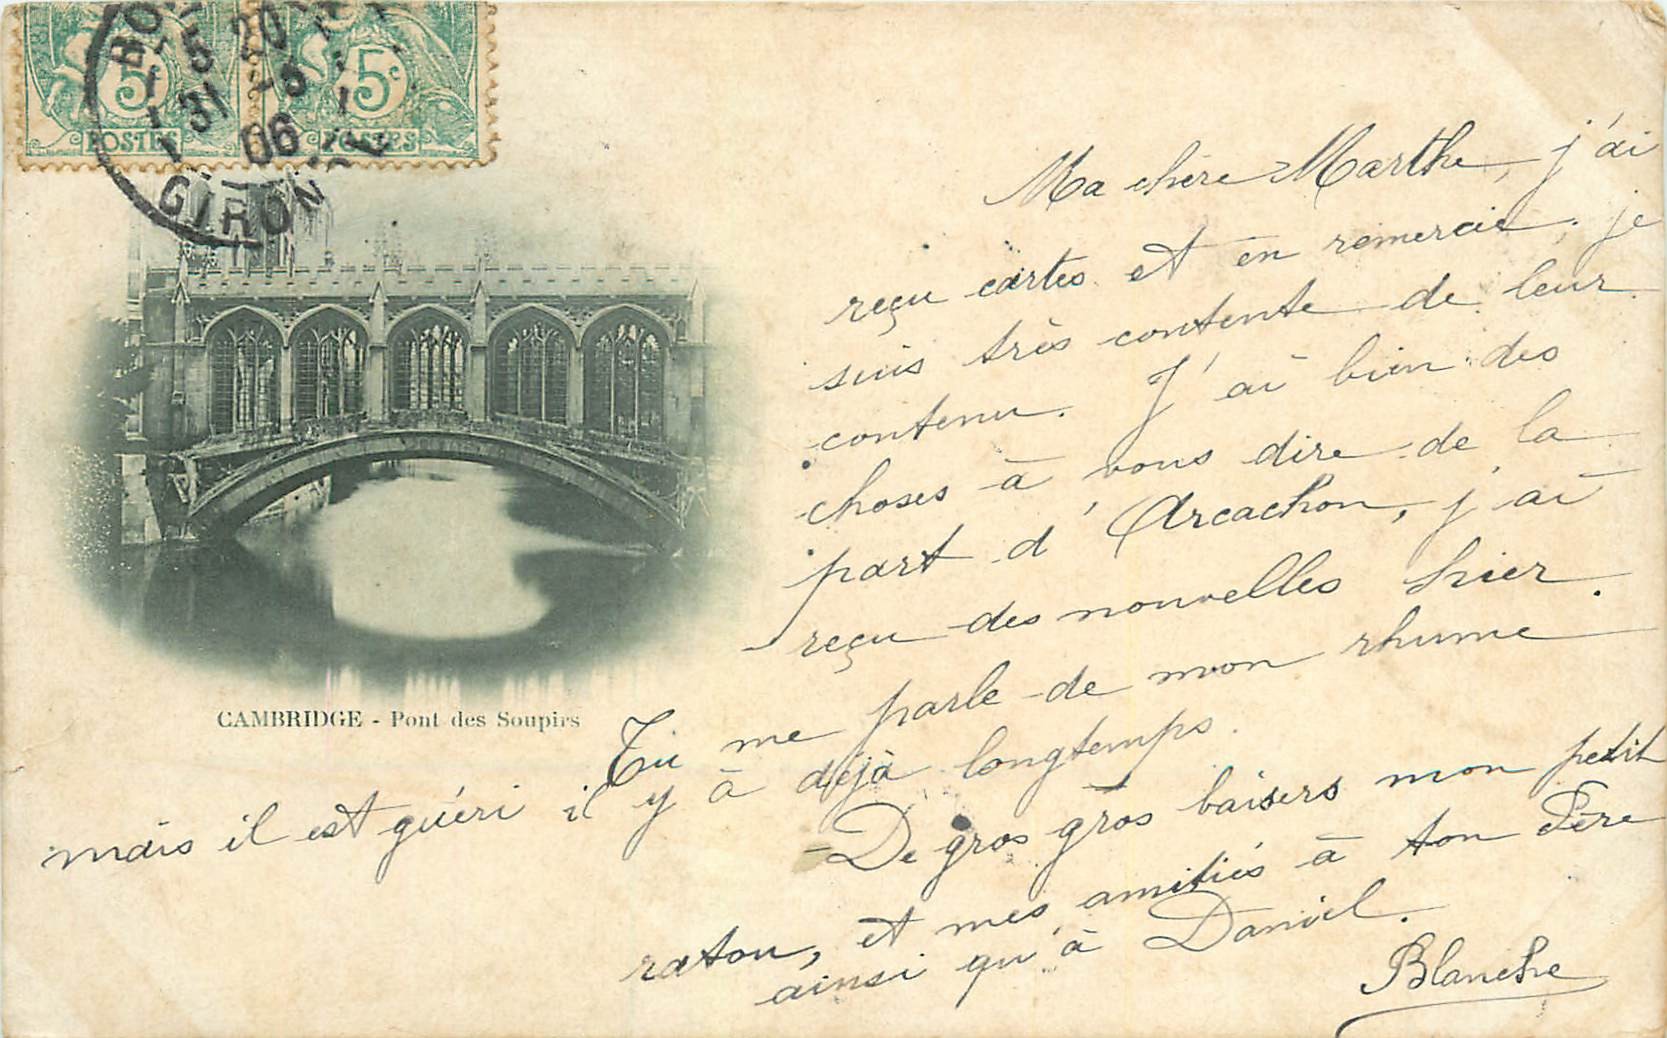 5c
POSTES
5c
POSTES
BO
5 20
31 -3
06
GIRONDE
CAMBRIDGE - Pont des Soupirs
Ma chère Marthe, j'ai
reçu cartes et en remercie. je
suis très contente de leur
contenu. J'ai bien des
choses à vous dire de la
part d'Arcachon, j'ai
reçu des nouvelles hier.
Tu me parle de mon rhume
mais il est guéri il y à déjà longtemps.
De gros gros baisers mon petit
raton, et mes amitiés à ton Père
ainsi qu'à Daniel.
Blanche